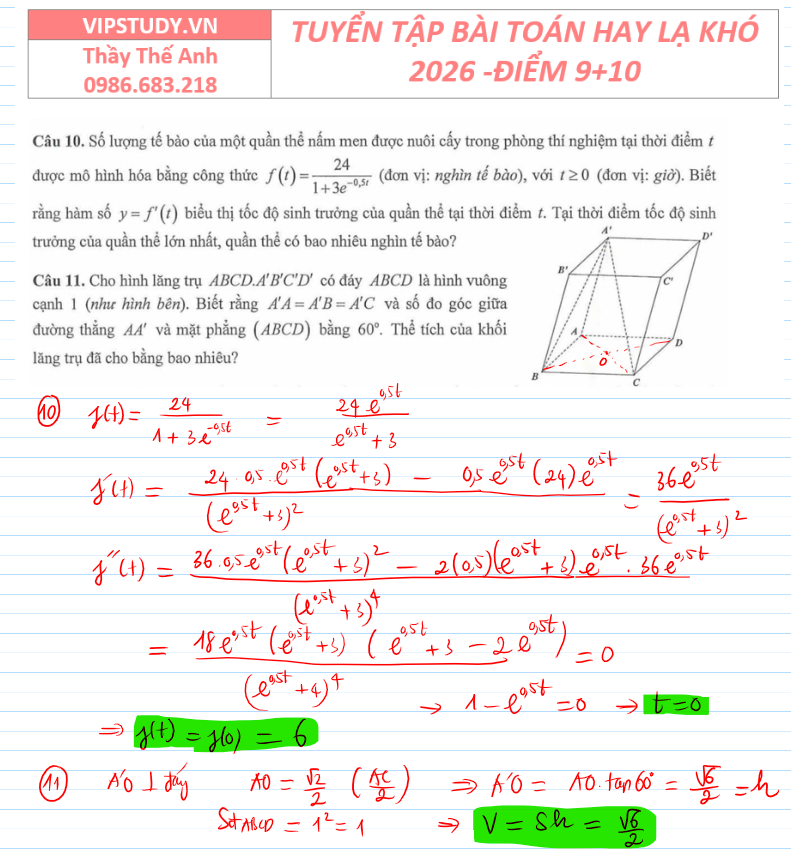 VIPSTUDY.VN
Thầy Thế Anh
0986.683.218
TUYỂN TẬP BÀI TOÁN HAY LẠ KHÓ
2026 -ĐIỂM 9+10
Câu 10. Số lượng tế bào của một quần thể nấm men được nuôi cấy trong phòng thí nghiệm tại thời điểm t
được mô hình hóa bằng công thức f(t) = 24/(1+3e^{-0,5t}) (đơn vị: nghìn tế bào), với t ≥ 0 (đơn vị: giờ). Biết
rằng hàm số y = f'(t) biểu thị tốc độ sinh trưởng của quần thể tại thời điểm t. Tại thời điểm tốc độ sinh
trưởng của quần thể lớn nhất, quần thể có bao nhiêu nghìn tế bào?
Câu 11. Cho hình lăng trụ ABCD.A'B'C'D' có đáy ABCD là hình vuông
cạnh 1 (như hình bên). Biết rằng A'A = A'B = A'C và số đo góc giữa
đường thẳng AA' và mặt phẳng (ABCD) bằng 60°. Thể tích của khối
lăng trụ đã cho bằng bao nhiêu?
A' D'
B' C'
A D
O
B C
10 f(t) = 24/(1 + 3e^{-0,5t}) = 24e^{0,5t}/(e^{0,5t} + 3)
f'(t) = (24.0,5.e^{0,5t}(e^{0,5t} + 3) - 0,5e^{0,5t}(24)e^{0,5t})/(e^{0,5t} + 3)^2 = 36e^{0,5t}/(e^{0,5t} + 3)^2
f''(t) = (36.0,5e^{0,5t}(e^{0,5t} + 3)^2 - 2(0,5)(e^{0,5t} + 3)e^{0,5t}.36e^{0,5t})/(e^{0,5t} + 3)^4
= 18e^{0,5t}(e^{0,5t} + 3)(e^{0,5t} + 3 - 2e^{0,5t})/(e^{0,5t} + 4)^4 = 0
→ 1 - e^{0,5t} = 0 → t = 0
⇒ f(t) = f(0) = 6
11 A'O ⊥ đáy AO = √2/2 (AC/2) ⇒ A'O = AO.tan60° = √6/2 = h
SđABCD = 1^2 = 1 ⇒ V = Sh = √6/2